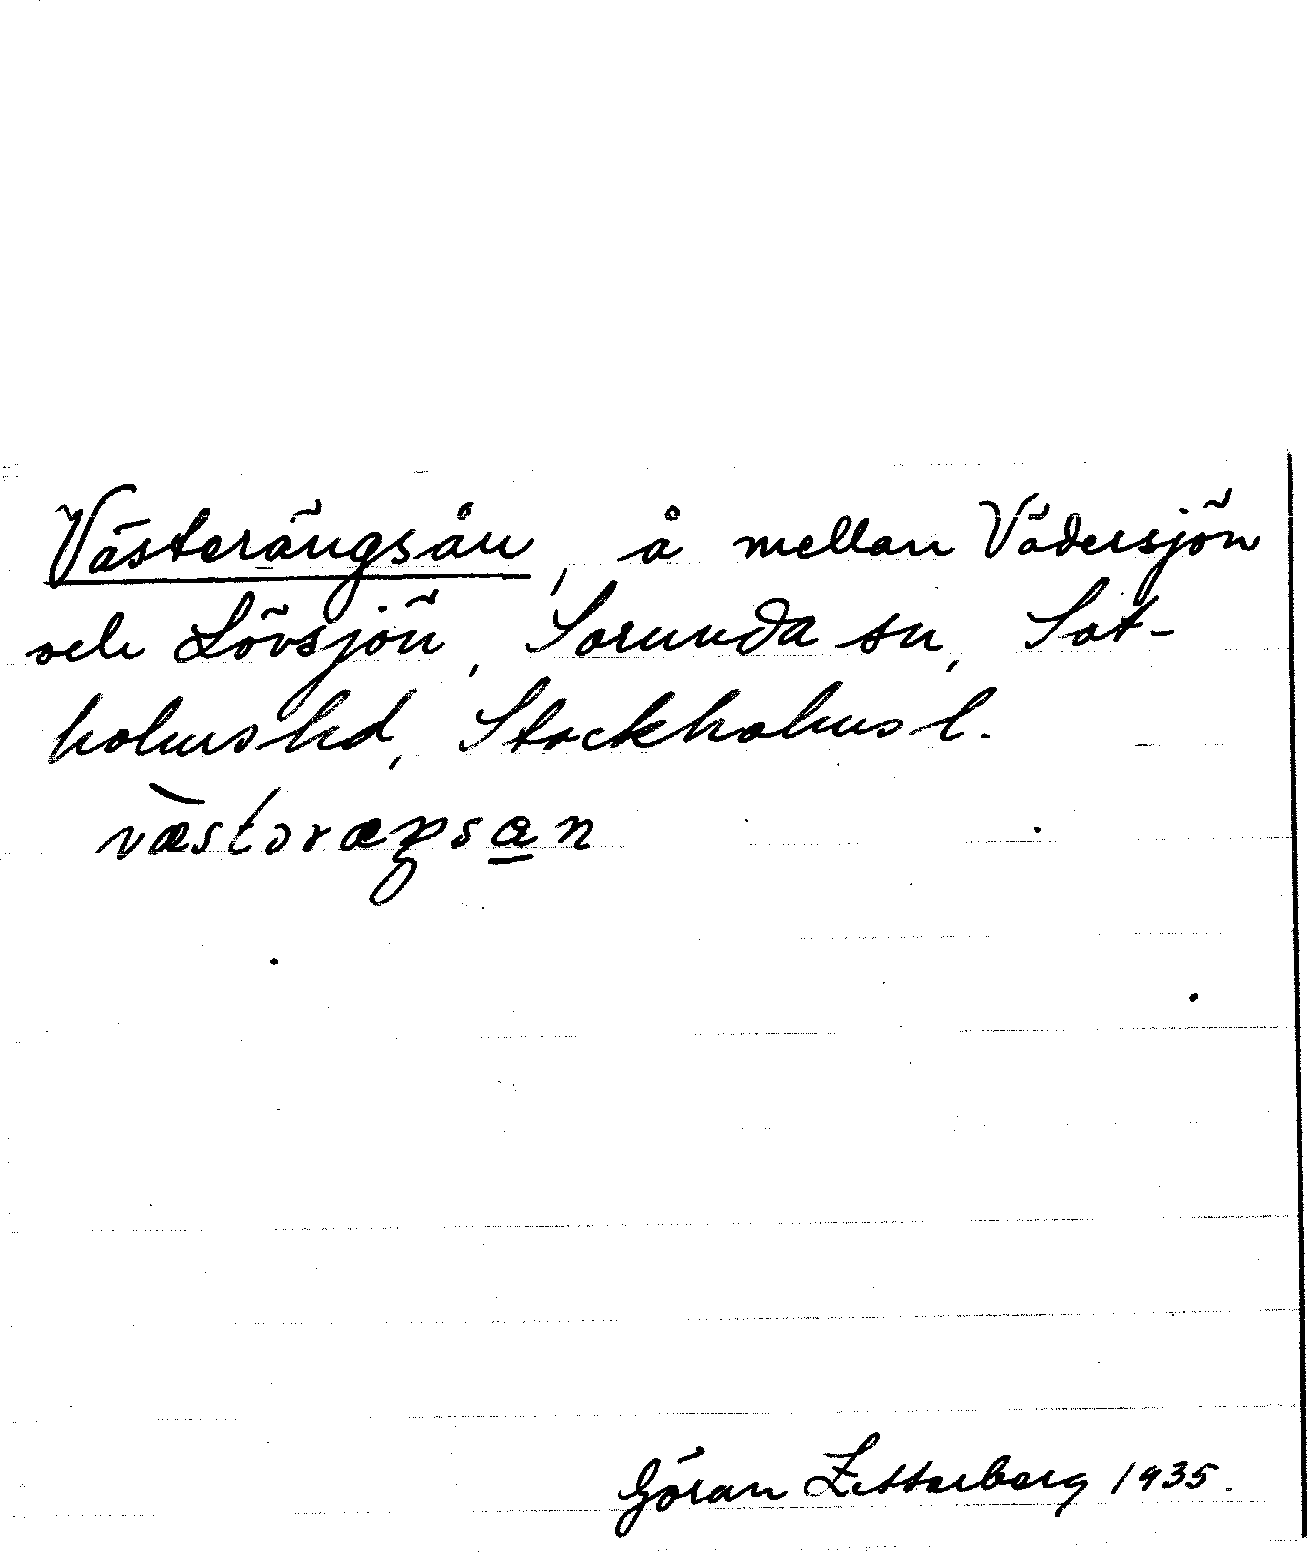 Västerängsån, å mellan Vädersjön
och Lövsjön, Sorunda sn, Sot-
holms hd, Stockholms l.
væstəræŋsa̲n
Göran Zetterberg 1935.